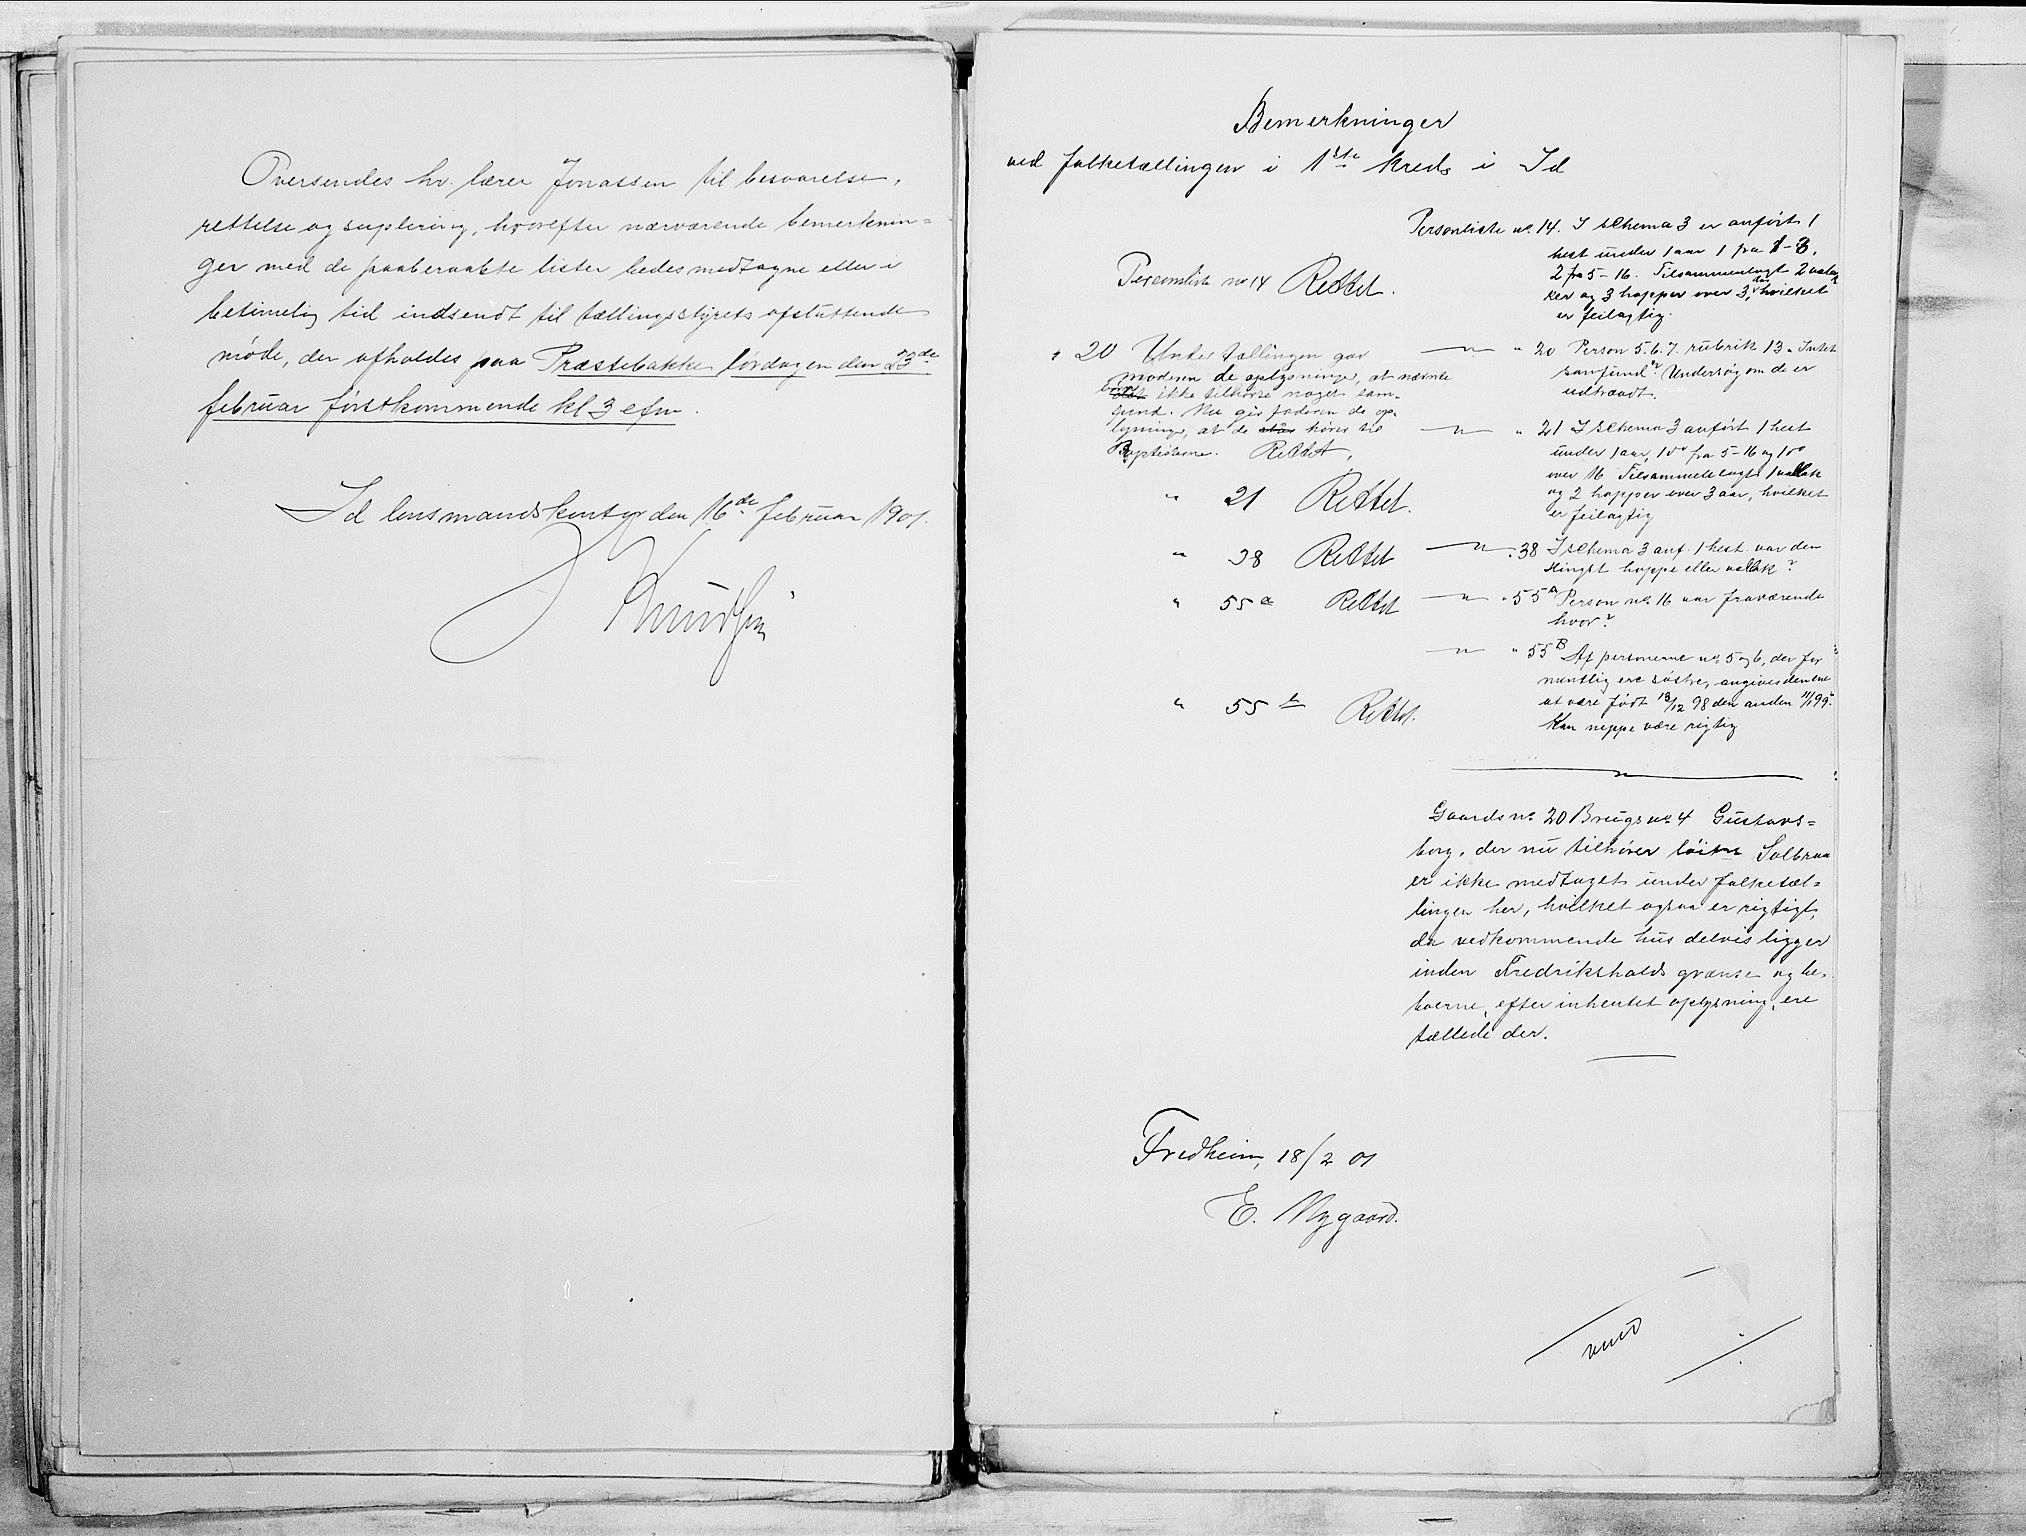 Oversendes hr. lærer Jonassen til besvarelse,
rettelse og suplering, hvorefter nærværende bemerknin=
ger med de paaberaabte lister bedes medtagne eller i
betimelig tid indsendt til tællingsstyrets afsluttende
møde, der afholdes paa Præstebakke lørdagen den 23de
februar førstkommende kl 3 efm.
Id lensmandskontor den 16de februar 1901.
J Knudsen
Bemerkninger
ved folketællingen i 1ste kreds i Id
Personliste no 14. I schema 3 er anført 1
hest under 1 aar 1 fra 1-3,
2 fra 5-16. Tilsammenlagt 2 valla
ker og 3 hopper over 3 aar, hvilket
er feilagtig.
" 20 Person 5.6.7. rubrik 13 "Intet
samfund"? Undersøg om de er
udtraadt.
" 21 I schema 3 anført 1 hest
under 1 aar, 1 do fra 5-16 og 1 do
over 16 Tilsammenlagt 1 vallak
og 2 hopper over 3 aar, hvilket
er feilagtig
" 38 I schema 3 anf. 1 hest. var den
Hingst hoppe eller vallak?
" 55A Person no 16 var fraværende
hvor?
" 55B Af personerne no 5 og 6, der for
mentlig ere søstre, angives den ene
at være født 18/12 98 den anden 11/1 99.
Kan neppe være rigtig
Personliste no 14 Rettet.
" 20 Under tællingen gav
moderen de oplysninger, at nævnte
børn ikke tilhørte noget sam-
fund. Nu gir faderen de op-
lysninger, at de står hører til
Baptisterne. Rettet.
" 21 Rettet.
" 38 Rettet
" 55 a Rettet
" 55 b Rettet.
Gaards no 20 Brugs no 4 Gustavs=
borg, der nu tilhører løitn Solbraa
er ikke medtaget under folketæl=
lingen her, hvilket ogsaa er rigtigt,
da vedkommende hus delvis ligger
inden Fredrikshalds grænse og be-
boerne, efter inhentet oplysning, ere
tællede der.
Fredheim, 18/2 01
E. Nygaard.